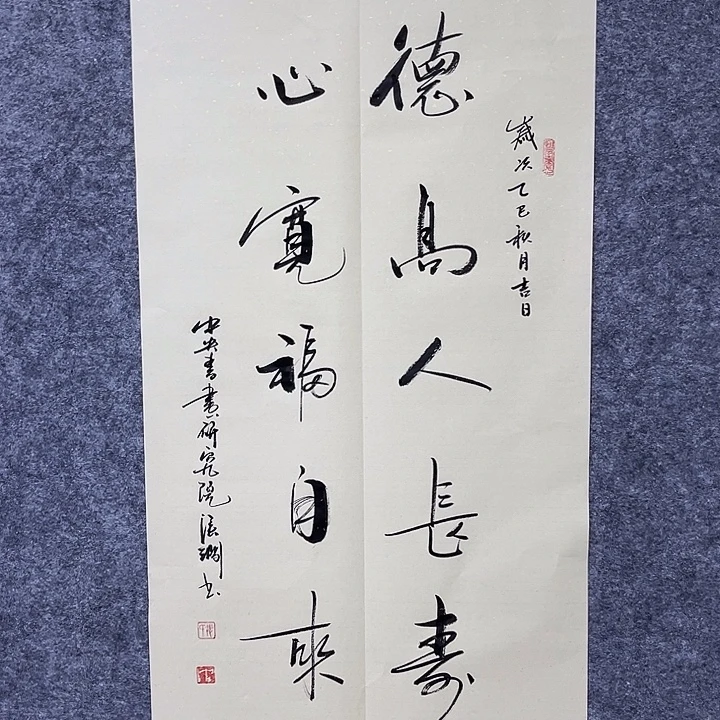 歲次乙巳秋月吉日
德高人長壽
心寬福自來
中央書畫研究院張
書